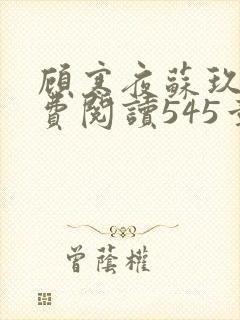 顧寒夜蘇玖
費閱讀545
曾蔭權